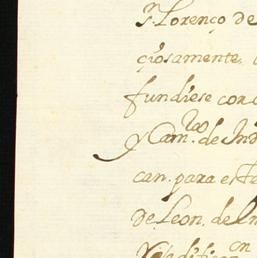 Sr. Lorenço de
çiosamente,
fundiese con
y Cam.ro de Ind
can. para este
de Leon, de In